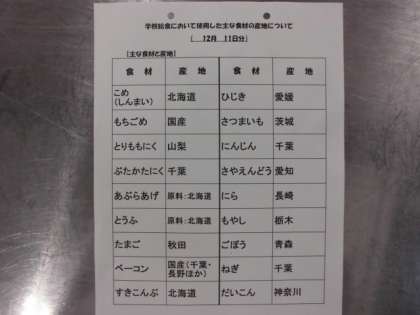 学校給食において使用した主な食材の産地について
[ 12月 11日分]
[主な食材と産地]
食 材 産 地 食 材 産 地
こめ
(しんまい) 北海道 ひじき 愛媛
もちごめ 国産 さつまいも 茨城
とりももにく 山梨 にんじん 千葉
ぶたかたにく 千葉 さやえんどう 愛知
あぶらあげ 原料:北海道 にら 長崎
とうふ 原料:北海道 もやし 栃木
たまご 秋田 ごぼう 青森
ベーコン 国産(千葉・
長野ほか) ねぎ 千葉
すきこんぶ 北海道 だいこん 神奈川